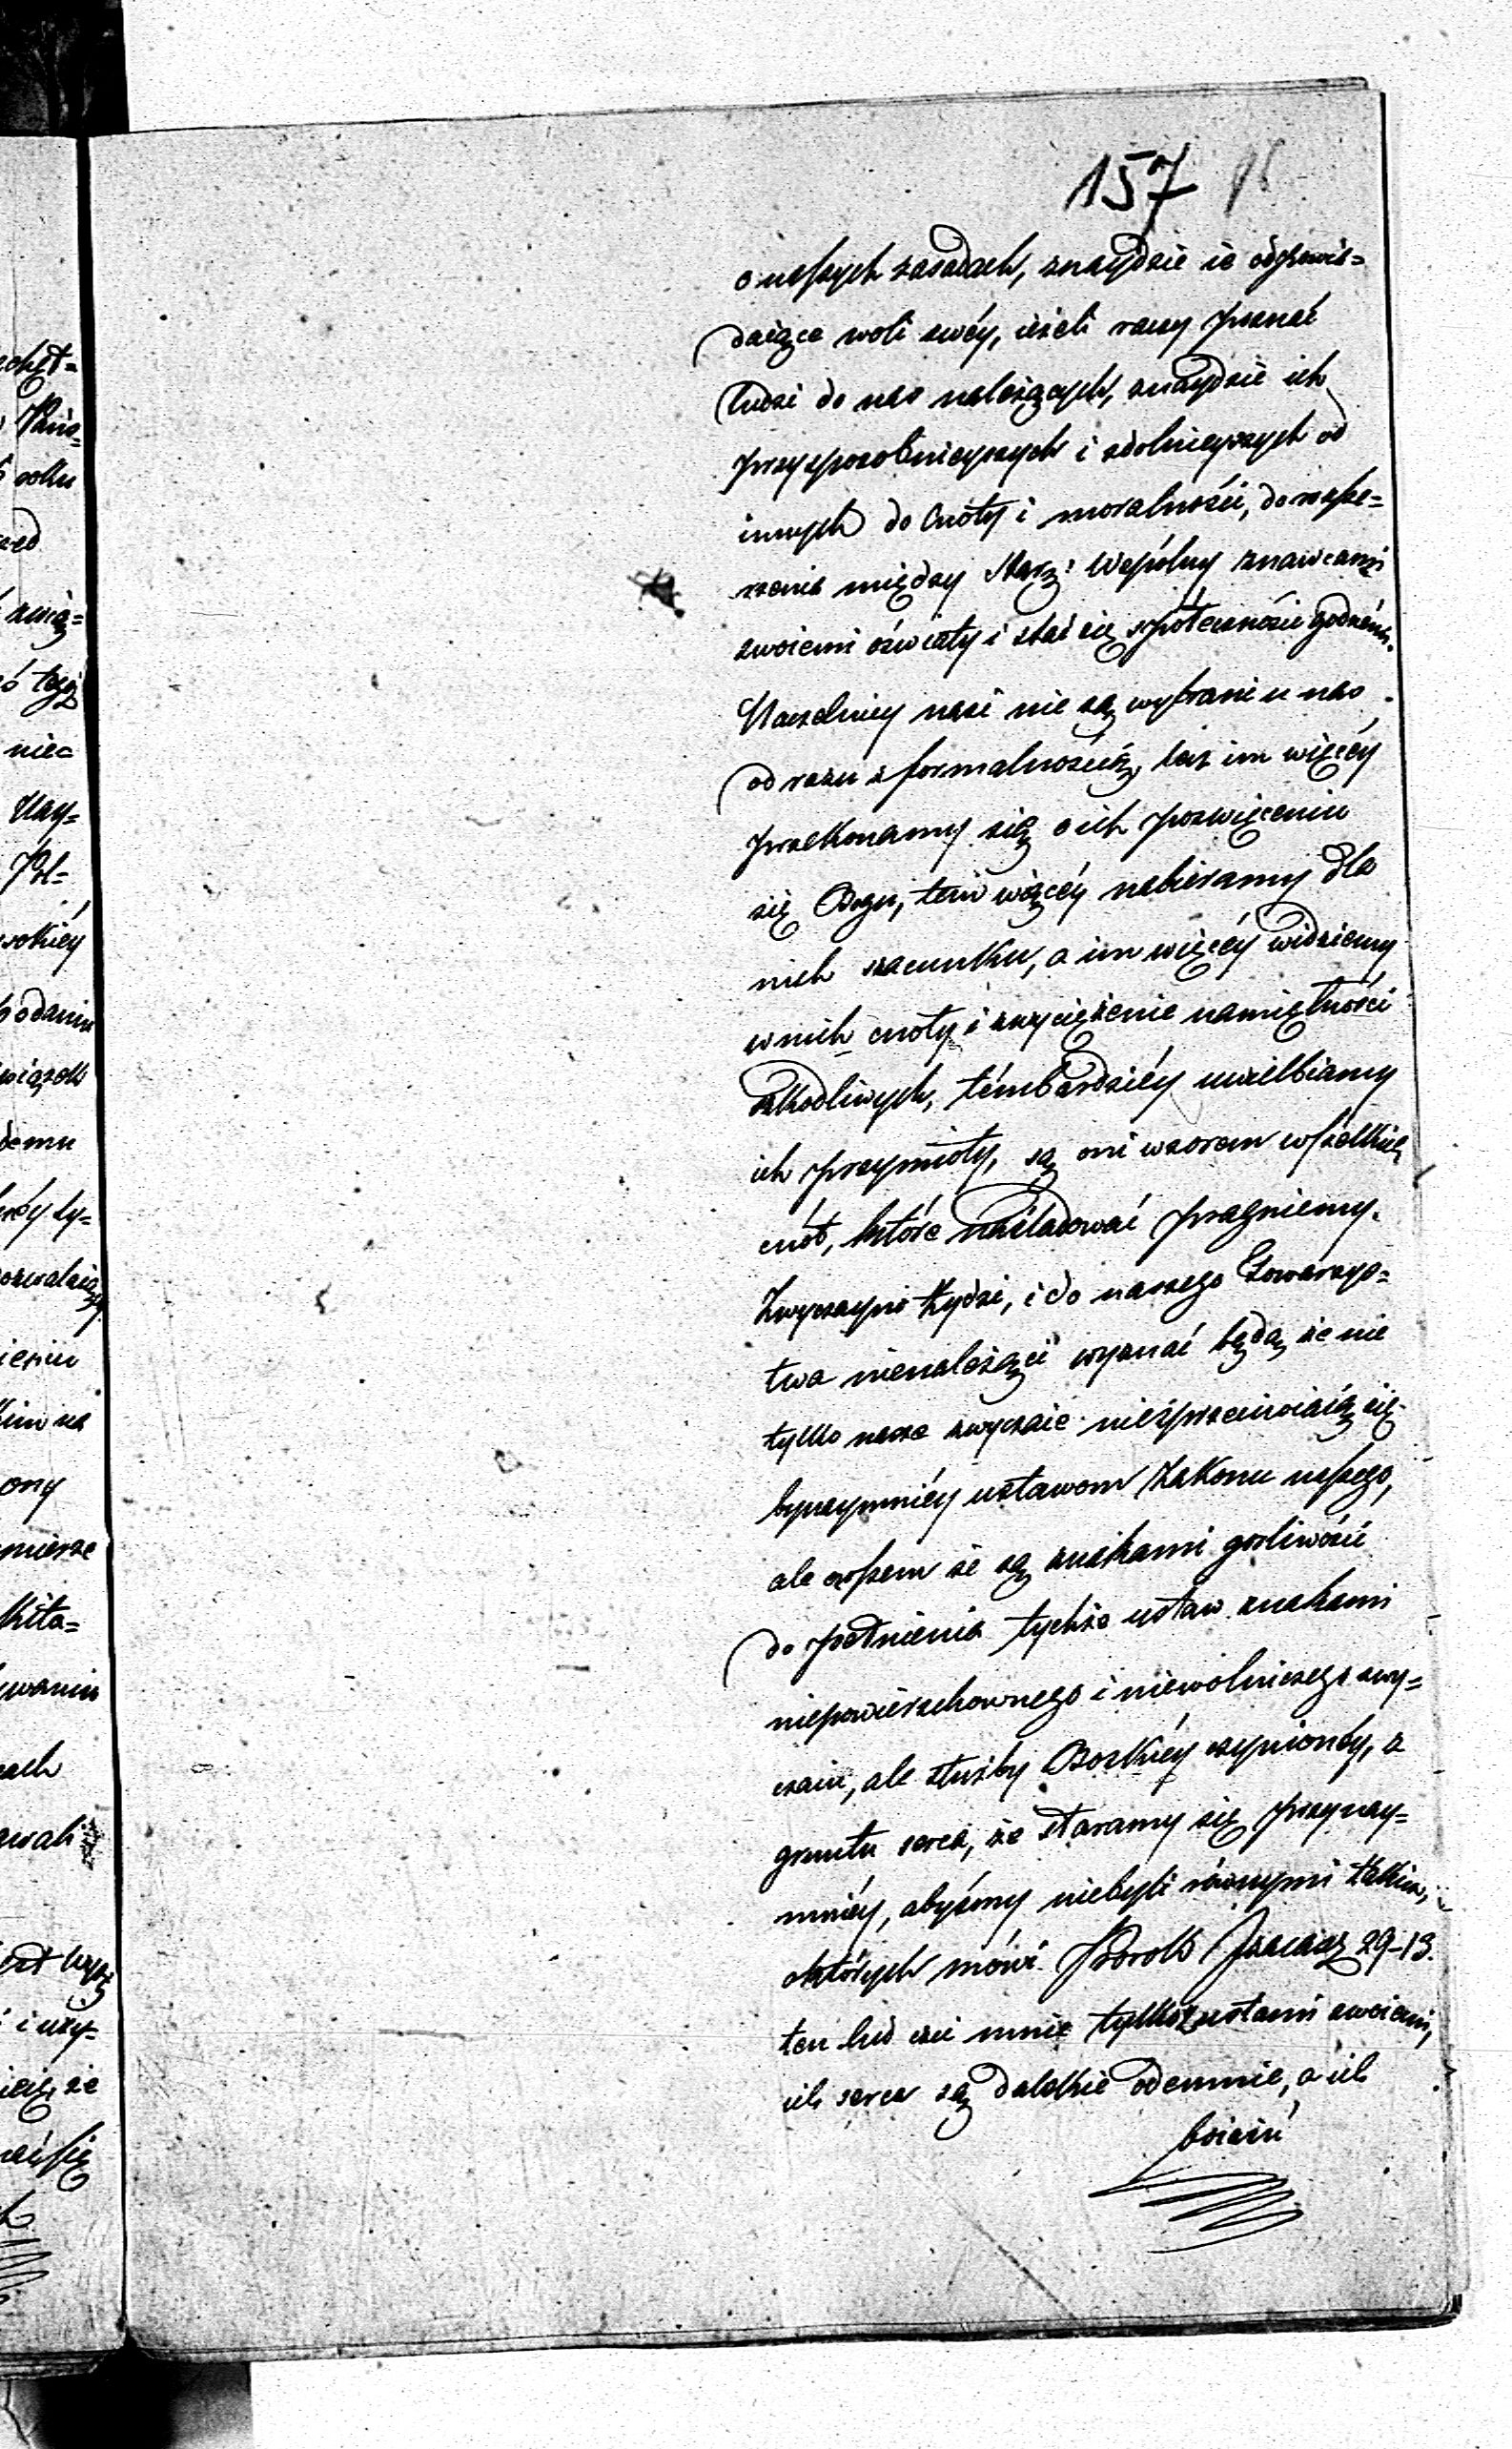 157
o naszych zasadach, znaydzie ie odpowia=
daiące woli swéy, ieżeli raczy poznać
ludzi do nas należących, znaydzie ich
przysposobnieyszych i zdolnieyszych od
innych do cnoty i moralności, do rozsze=
rzenia między Starz: Wspólny znawcami
swoiemi oświaty i stać się społeczności godnémi.
Naczelnicy nasi nie są wybrani u nas
od razu z formalnością, lecz im więcéy
przekonamy się o ich poswięceniu
się Bogu, tem więcéy nabieramy dla
nich szacunku, a im więcéy widziemy
w nich cnoty i zwyciężenie namiętności
szkodliwych, témbardziéy uwielbiamy
ich przymioty, są oni wzorem wszelkich
cnót, które naśladować pragniemy.
Zwyczayni Żydzi, i do naszego Towarzys=
twa nienależący wyznać będą że nie
tylko nasze zwyczaie niesprzeciwiaią się
bynaymniéy ustawom Zakonu naszego,
ale owszem że są znakami gorliwości
do pełnienia tychże ustaw znakami
niepowierzchownego i niewolniczego zwy=
czaiu, ale służby Boskiéy czynionéy, z
gruntu serca, że staramy się przynay=
mniéy, abyśmy niebyli równymi takim,
o których mówi Prorok Izaiasz 29-13.
ten lud czci mnie tylko z ustami swoiemi,
ich serca są dalekie odemnie, a ich
boiaźń